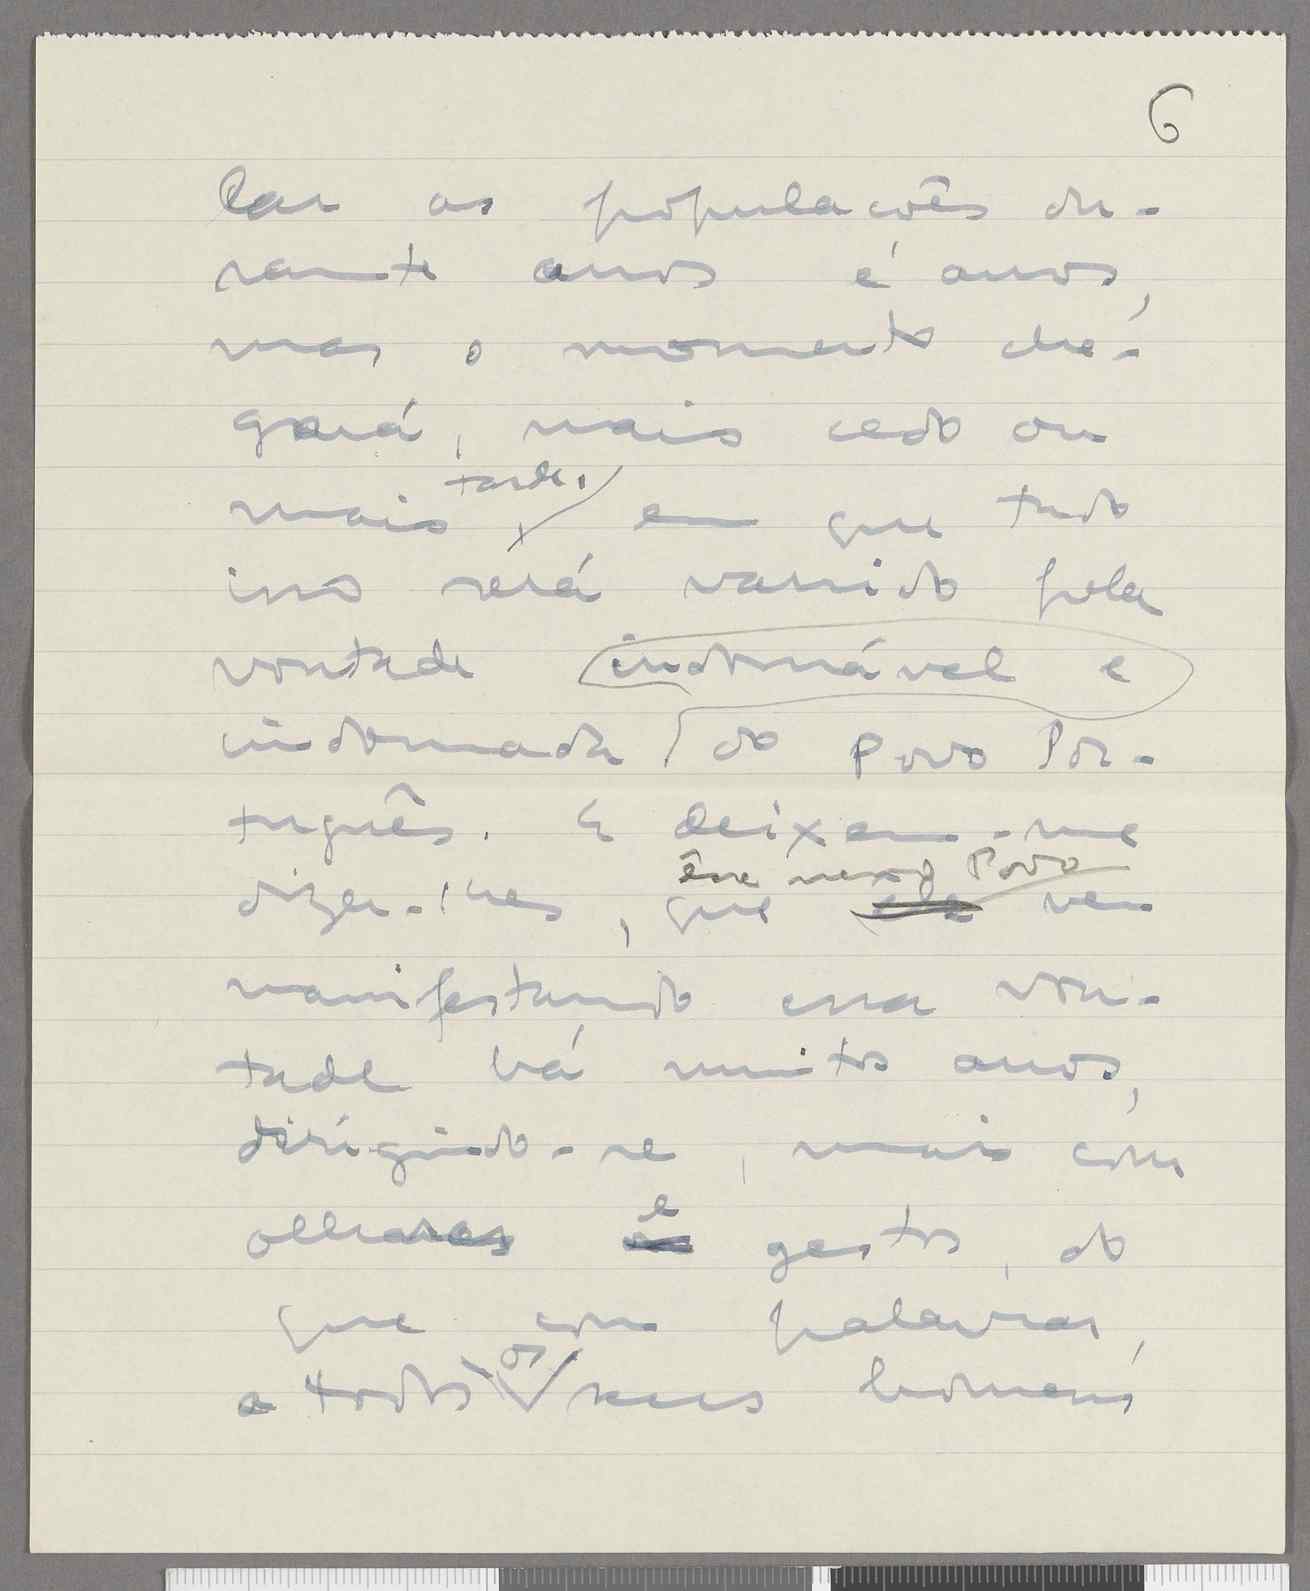 6
lar as populacões du-
rante anos e anos,
mas o momento che-
gará, mais cedo ou
mais tarde, em que tudo
isso será varrido pela
vontade indomável e
indomada do Povo Por-
tuguês. E deixem-me
dizer-lhes, que êsse nosso Povo vem
manifestando essa von-
tade há muitos anos,
dirigindo-se, mais com
olhares e gestos, do
que com palavras,
a todos os seus homens